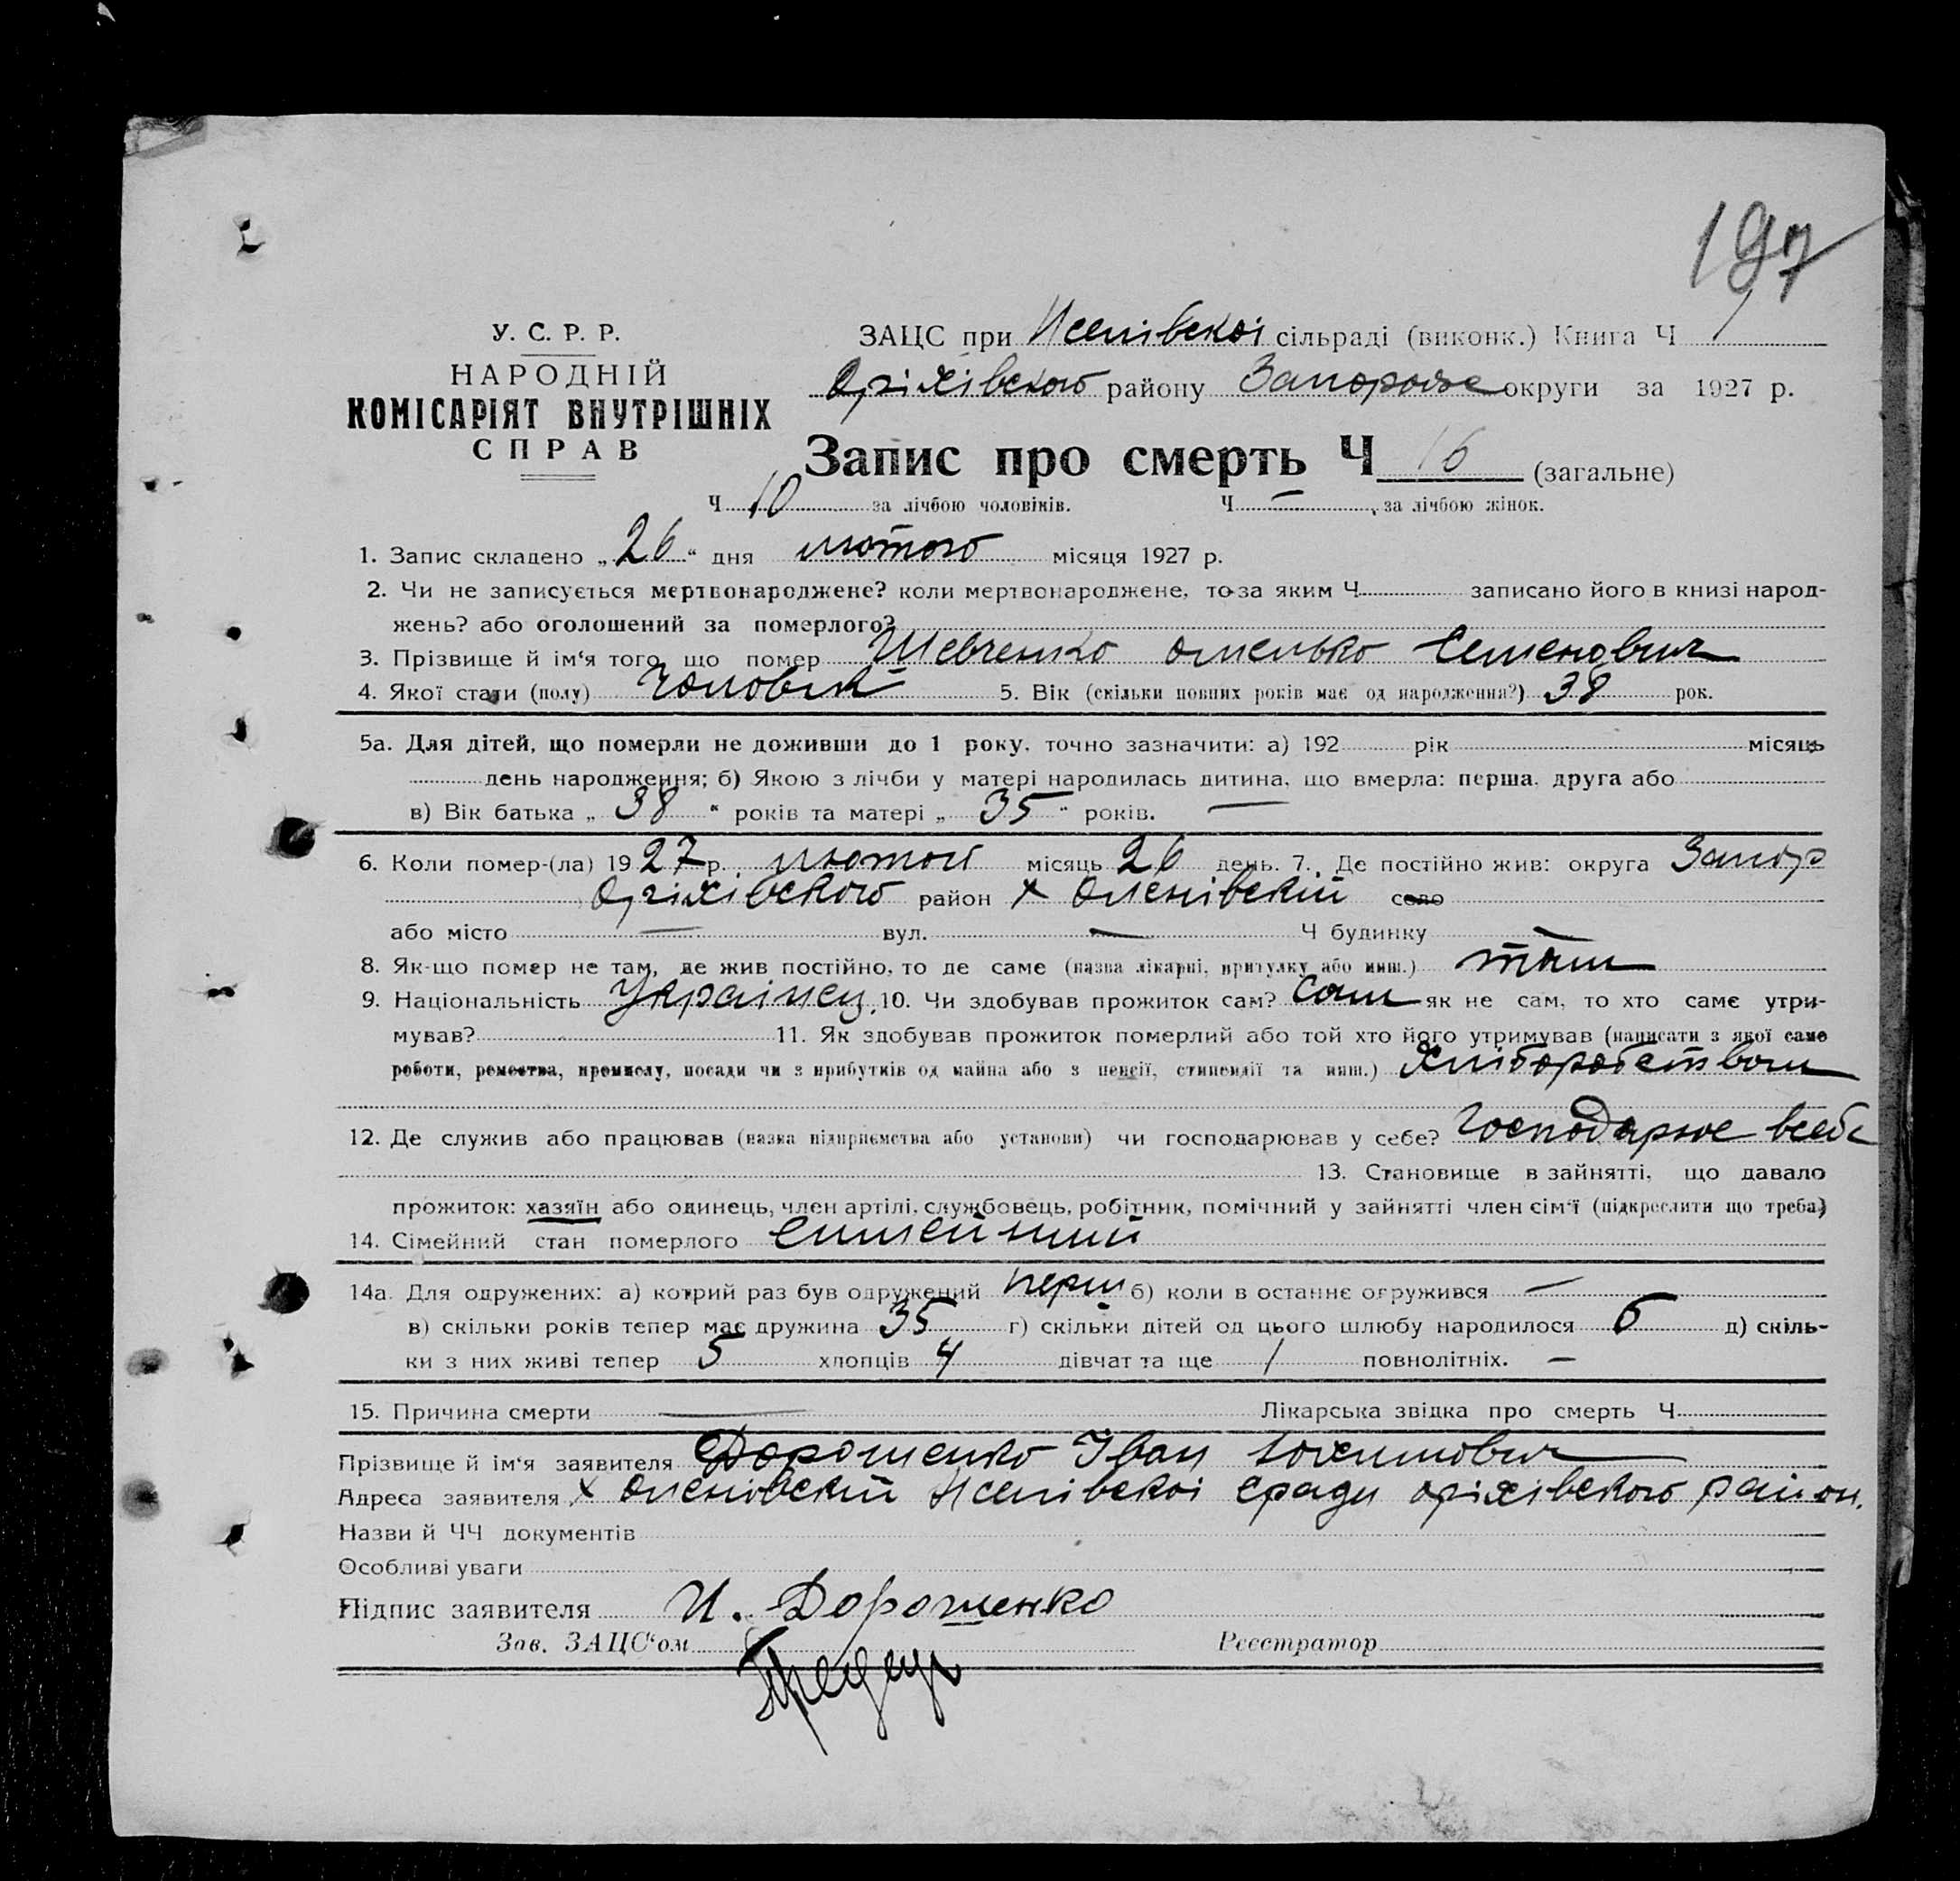 197
У. С. Р. Р.
НАРОДНІЙ
КОМІСАРІЯТ ВНУТРІШНІХ
СПРАВ
ЗАЦС при сільраді (виконк.) Книга Ч 1
Оріхівського району Запорож округи за 1927 р.
Запис про смерть Ч 16 (загальне)
Ч 10 за лічбою чоловіків. Ч — за лічбою жінок.
1. Запис складено „ 26 “ дня лютого місяця 1927 р.
2. Чи не записується мертвонароджене? коли мертвонароджене, то за яким Ч. записано його в книзі народ-
жень? або оголошений за померлого?
3. Прізвище й ім‘я того, що помер Шевченко Омелько Семенович
4. Якої стати (полу) Чоловік 5. Вік (скільки повних років має од народження?) 38 рок.
5а. Для дітей, що померли не доживши до 1 року, точно зазначити: а) 192 рік місяць
день народження; б) Якою з лічби у матері народилась дитина, що вмерла: перша, друга або
в) Вік батька „ 38 “ років та матері „ 35 “ років. —
6. Коли помер-(ла) 1927 р. лютой місяць 26 день. 7. Де постійно жив: округа Запор
Оріхівського район х Оленівскій село
або місто — вул. — Ч будинку —
8. Як-що помер не там, де жив постійно, то де саме (назва лікарні, притулку або инш.) там
9. Національність Українец 10. Чи здобував прожиток сам? Сам як не сам, то хто саме утри-
мував? 11. Як здобував прожиток померлий або той хто його утримував (написати з якої саме
роботи, ремества, промислу, посади чи з прибутків од майна або з пенсії, стипендії та инш.) Хліборобством
12. Де служив або працював (назва підприємства або установи) чи господарював у себе? Господарює всебе
13. Становище в зайнятті, що давало
прожиток: хазяїн або одинець, член артілі, службовець, робітник, помічний у зайнятті член сім‘ї (підкреслити що треба)
14. Сімейний стан померлого симейний
14а. Для одружених: а) котрий раз був одружений перш б) коли в останнє одружився —
в) скільки років тепер має дружина 35 г) скільки дітей од цього шлюбу народилося 6 д) скіль-
ки з них живі тепер 5 хлопців 4 дівчат та ще 1 повнолітніх. —
15. Причина смерти — Лікарська звідка про смерть Ч.
Прізвище й ім‘я заявителя Дорошенко Іван Юхимович
Адреса заявителя х Оленівский сради оріхівского район.
Назви й ЧЧ документів
Особливі уваги
Підпис заявителя И. Дорошенко
Зав. ЗАЦС‘ом Реєстратор